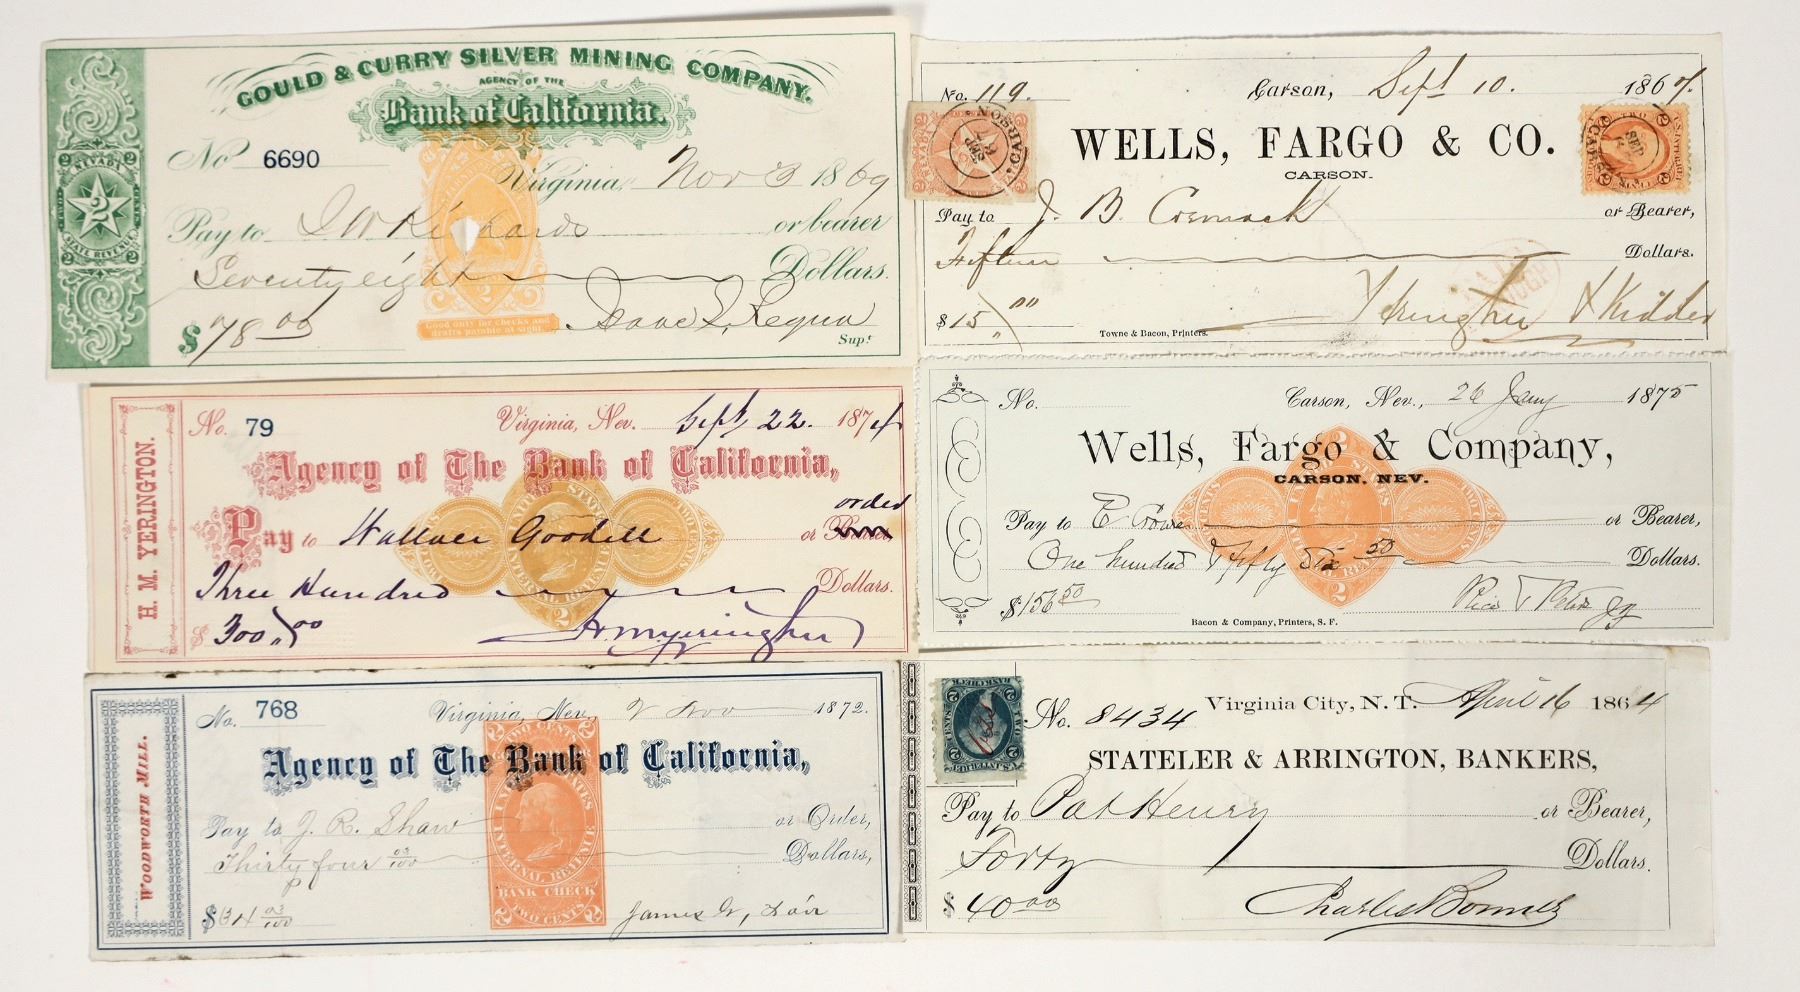 GOULD & CURRY SILVER MINING COMPANY.
AGENCY OF THE
Bank of California.
No 6690
Virginia, Nov 3 1869
Pay to I W Richards or bearer
Seventy eight Dollars.
$78.00
Isaac L. Requa
Supt
2 NEVADA 2
TWO
2
CENTS
2 STATE REVENUE 2
2
Good only for checks and
drafts payable at sight.
No. 119. Carson, Sept 10. 1867.
WELLS, FARGO & CO.
CARSON.
Pay to J. B. Cormack or Bearer,
Fifteen Dollars.
$15.00
Yerington & Kidder
Towne & Bacon, Printers.
CARSON
SEP
H. M. YERINGTON.
No. 79 Virginia, Nev. Sept 22. 1874
Agency of The Bank of California,
order
Pay to Wallace Goodell or Bearer,
Three Hundred Dollars.
$300.00
H M Yerington
2
No. Carson, Nev., 26 Jany 1875
Wells, Fargo & Company,
CARSON, NEV.
Pay to E Crowe or Bearer,
One hundred & fifty six 50 Dollars.
$156 50
Bacon & Company, Printers, S. F.
WOODWORTH MILL.
No. 768 Virginia, Nev. 2 Nov 1872.
Agency of The Bank of California,
Pay to J. R. Shaw or Order,
Thirty four 03/100 Dollars,
$34 03/100
James G. Fair
TWO CENTS
UNITED STATES
INTERNAL REVENUE
BANK CHECK
TWO CENTS
No. 8434 Virginia City, N. T. April 16 1864
STATELER & ARRINGTON, BANKERS,
Pay to Pat Henry or Bearer,
Forty Dollars.
$40.00
Charles Bonner